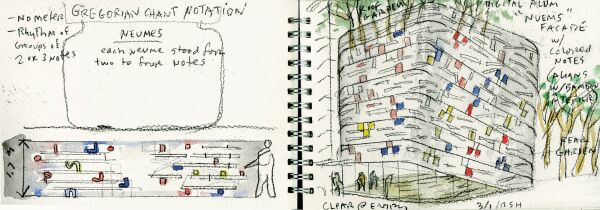 GREGORIAN CHANT NOTATION
- NO METER
- RHYTHM OF
GROUPS OF
2 OR 3 NOTES
NEUMES
each neume stood for
two to four notes
ROOF
GARDEN
DIGITAL ALBUM
"NUEMS"
FACADE
W/
COLORED
NOTES
ALIGNS
W/ BAMBOO
INTERIOR
REAR
GARDEN
CLEAR @ ENTRY
3/1/RSH